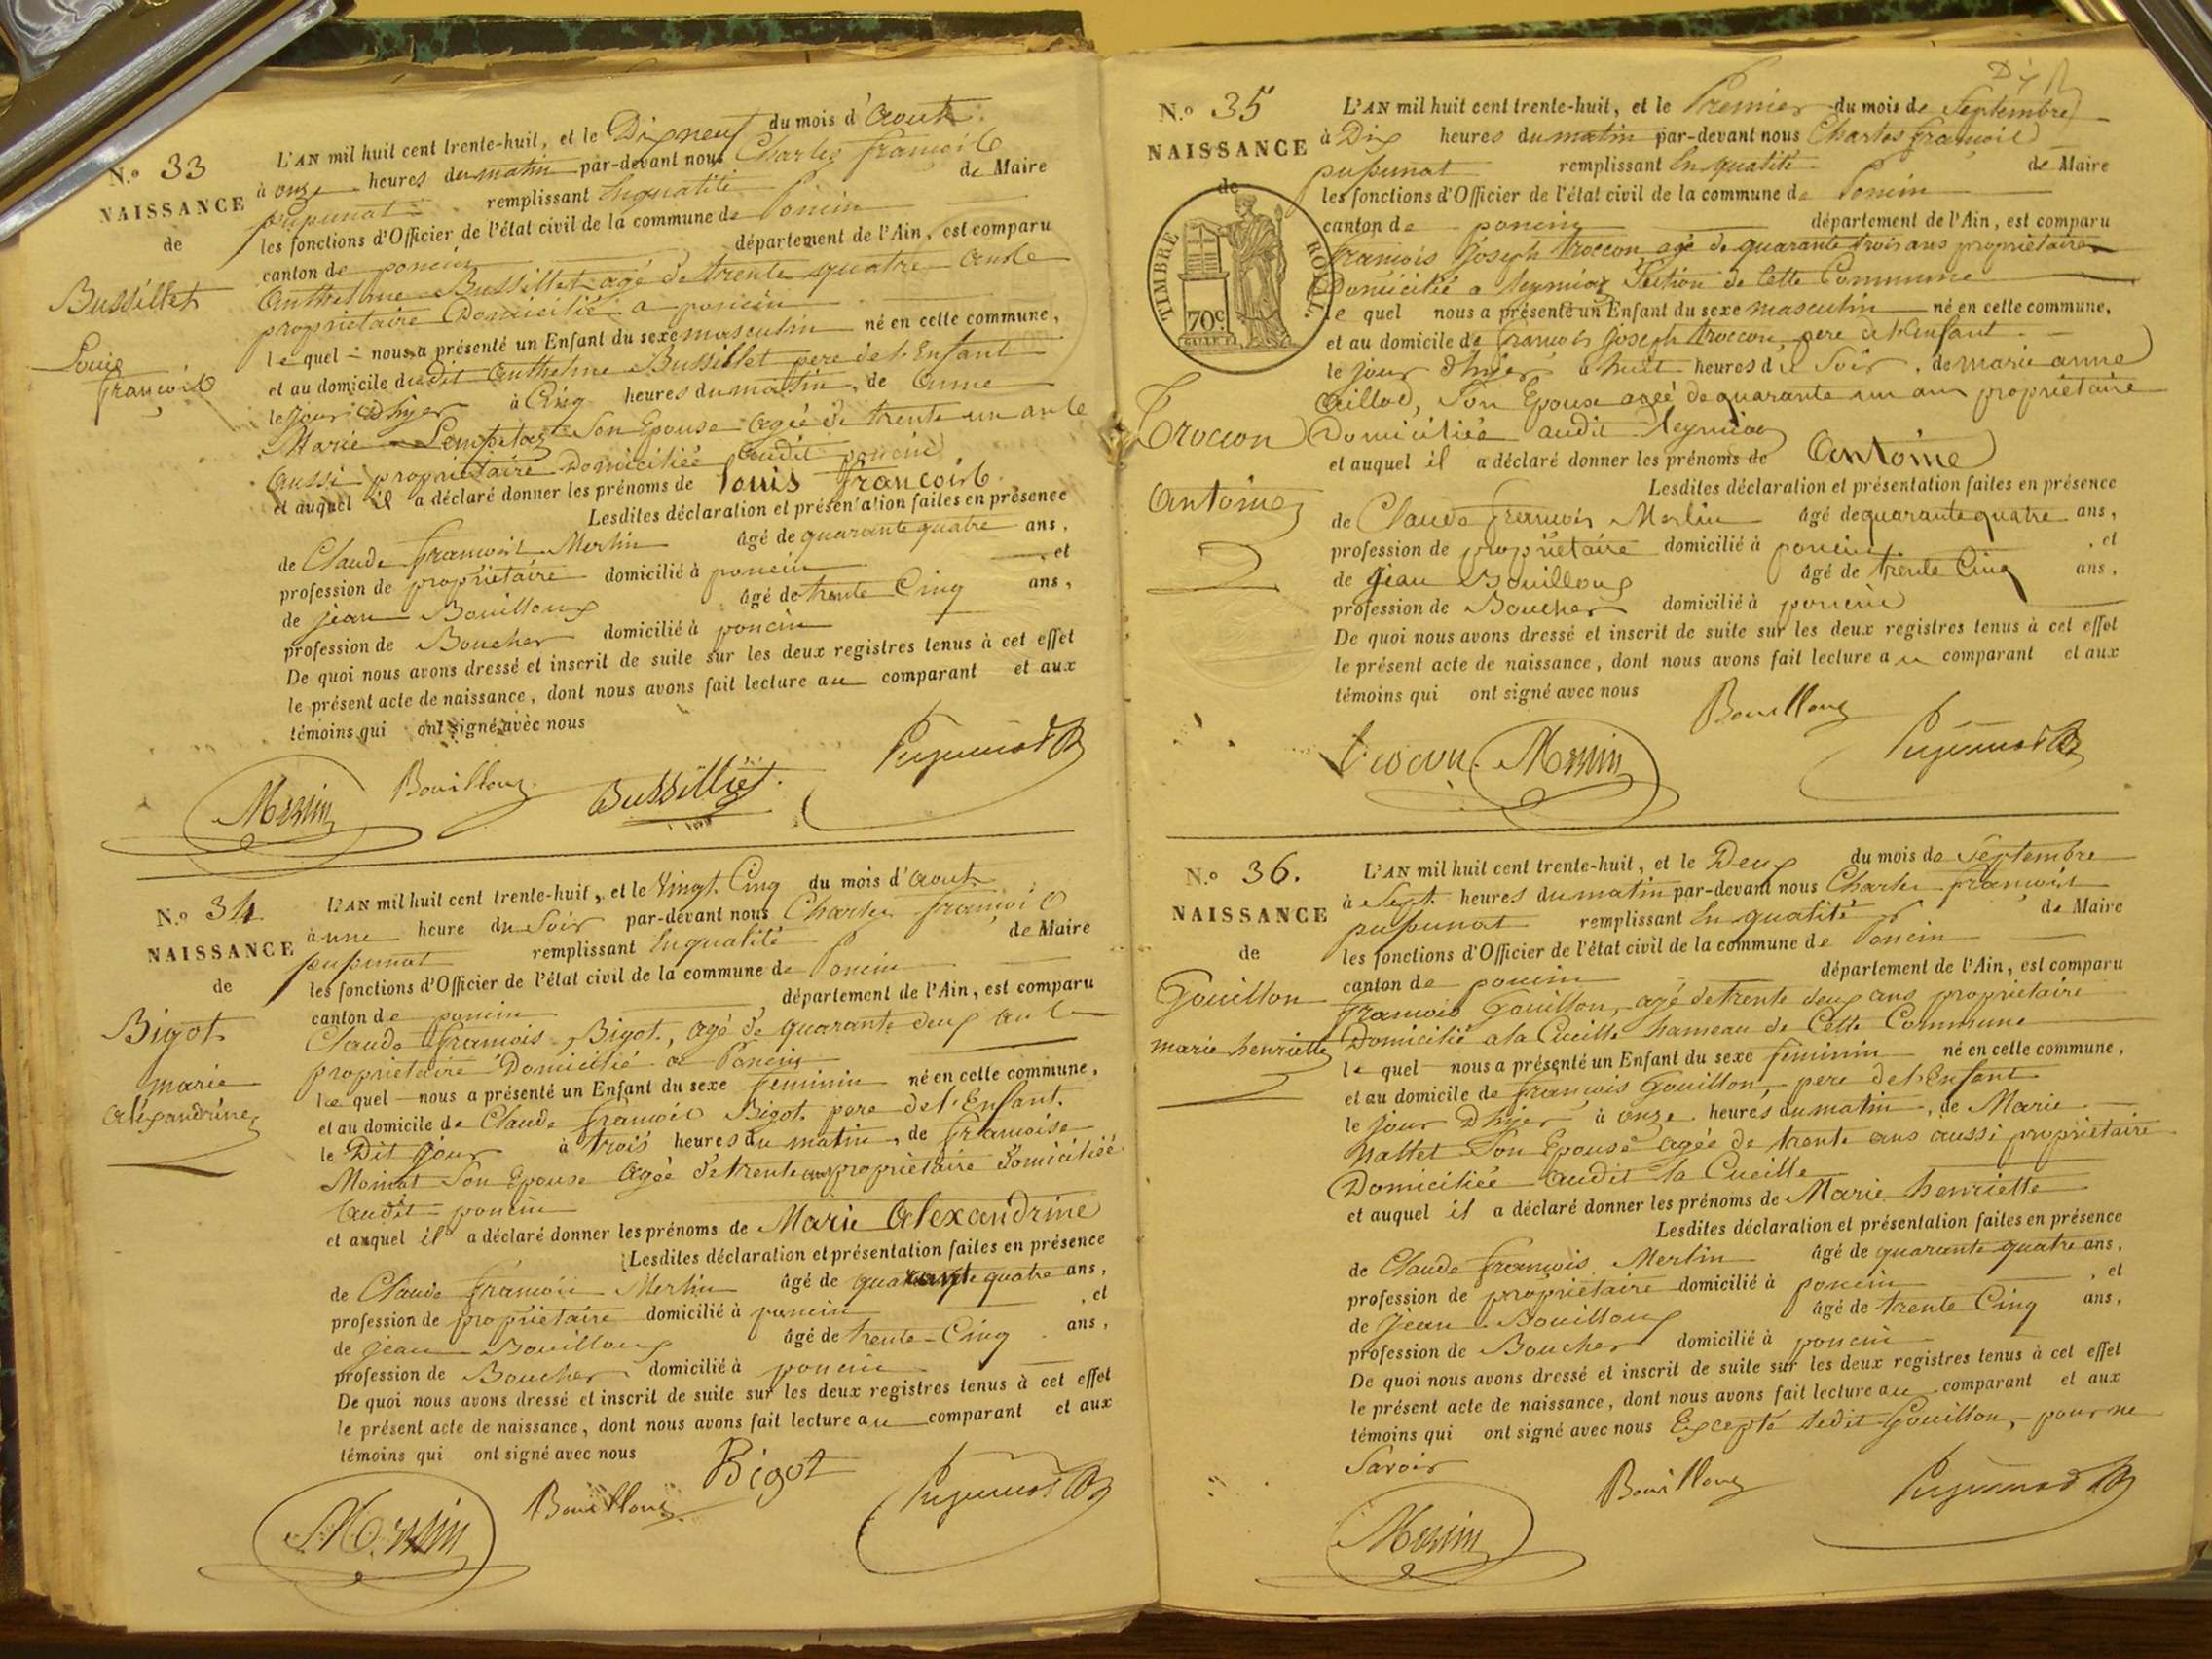 N.º 33
NAISSANCE
de
Bussillet
Louis
françois
L'AN mil huit cent trente-huit, et le Dix neuf du mois d'aout
à onze heures du matin par-devant nous Charles françois
pupunat remplissant En qualité de Maire
les fonctions d'Officier de l'état civil de la commune de Poncin
canton de poncin département de l'Ain, est comparu
Anthelme Bussillet agé de trente quatre ans
propriétaire Domicilié a poncin
le quel nous a présenté un Enfant du sexe masculin né en cette commune,
et au domicile dudit Anthelme Bussillet pere de l'Enfant
le jour d'hyer à Cinq heures du matin, de anne
Marie Son Epouse agée de trente un ans
aussi propriétaire Domiciliée audit poncin
et auquel il a déclaré donner les prénoms de Louis françois
Lesdites déclaration et présentation faites en présence
de Claude françois Merlin âgé de quarante quatre ans,
profession de propriétaire domicilié à poncin et
de jean Bouilloux âgé de trente Cinq ans,
profession de Boucher domicilié à poncin
De quoi nous avons dressé et inscrit de suite sur les deux registres tenus à cet effet
le présent acte de naissance, dont nous avons fait lecture au comparant et aux
témoins qui ont signé avec nous
Merlin Bouilloux Bussilliet Pupunat
N.º 34
NAISSANCE
de
Bigot
marie
alexandrine
L'AN mil huit cent trente-huit, et le Vingt Cinq du mois d'aout
à une heure du Soir par-devant nous Charles françois
pupunat remplissant En qualité de Maire
les fonctions d'Officier de l'état civil de la commune de Poncin
canton de poncin département de l'Ain, est comparu
Claude françois Bigot, agé de quarante deux ans
propriétaire Domicilié a Poncin
le quel nous a présenté un Enfant du sexe feminin né en cette commune,
et au domicile de Claude françois Bigot pere de l'Enfant.
le Dit jour à trois heures du matin, de françoise
Son Epouse agée de trente ans propriétaire domiciliée
audit poncin
et auquel il a déclaré donner les prénoms de Marie Alexandrine
Lesdites déclaration et présentation faites en présence
de Claude françois Merlin âgé de quarante quatre ans,
profession de propriétaire domicilié à poncin, et
de jean Bouilloux âgé de trente-Cinq ans,
profession de Boucher domicilié à poncin
De quoi nous avons dressé et inscrit de suite sur les deux registres tenus à cet effet
le présent acte de naissance, dont nous avons fait lecture au comparant et aux
témoins qui ont signé avec nous
Merlin Bouilloux Bigot Pupunat
N.º 35
NAISSANCE
de
TIMBRE ROYAL.
70c
Trocon
Antoine
L'AN mil huit cent trente-huit, et le Premier du mois de Septembre
à Dix heures du matin par-devant nous Charles françois
pupunat remplissant En qualité de Maire
les fonctions d'Officier de l'état civil de la commune de Poncin
canton de poncin département de l'Ain, est comparu
françois joseph troccon agé de quarante trois ans propriétaire
Domicilié a Leymiaz Section de Cette Commune
le quel nous a présenté un Enfant du sexe masculin né en cette commune,
et au domicile de françois joseph troccon pere de l'Enfant
le jour d'hyer à huit heures du Soir, de marie anne
Son Epouse agée de quarante un ans propriétaire
Domiciliée audit Leymiaz
et auquel il a déclaré donner les prénoms de Antoine
Lesdites déclaration et présentation faites en présence
de Claude françois Merlin âgé de quarante quatre ans,
profession de propriétaire domicilié à poncin, et
de jean Bouilloux âgé de trente Cinq ans,
profession de Boucher domicilié à poncin
De quoi nous avons dressé et inscrit de suite sur les deux registres tenus à cet effet
le présent acte de naissance, dont nous avons fait lecture au comparant et aux
témoins qui ont signé avec nous
Trocon Merlin Bouilloux Pupunat
N.º 36.
NAISSANCE
de
Gouillon
marie henriette
L'AN mil huit cent trente-huit, et le Deux du mois de Septembre
à Sept heures du matin par-devant nous Charles françois
pupunat remplissant En qualité de Maire
les fonctions d'Officier de l'état civil de la commune de Poncin
canton de poncin département de l'Ain, est comparu
françois Gouillon, agé de trente deux ans propriétaire
Domicilié a la Cueille hameau de Cette Commune
le quel nous a présenté un Enfant du sexe feminin né en cette commune,
et au domicile de françois Gouillon, pere de l'Enfant
le jour D'hyer à onze heures du matin, de Marie
Son Epouse agée de trente ans aussi propriétaire
Domiciliée audit la Cueille
et auquel il a déclaré donner les prénoms de Marie henriette
Lesdites déclaration et présentation faites en présence
de Claude françois Merlin âgé de quarante quatre ans,
profession de propriétaire domicilié à poncin, et
de jean Bouilloux âgé de trente Cinq ans,
profession de Boucher domicilié à poncin
De quoi nous avons dressé et inscrit de suite sur les deux registres tenus à cet effet
le présent acte de naissance, dont nous avons fait lecture au comparant et aux
témoins qui ont signé avec nous Excepté ledit Gouillon, pour ne
Savoir
Merlin Bouilloux Pupunat